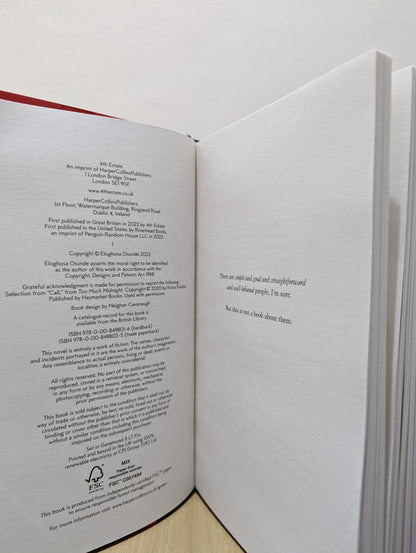 4th Estate
An imprint of HarperCollinsPublishers
1 London Bridge Street
London SE1 9GF
www.4thestate.co.uk
HarperCollinsPublishers
1st Floor, Watermarque Building, Ringsend Road
Dublin 4, Ireland
First published in Great Britain in 2022 by 4th Estate
First published in the United States by Riverhead Books,
an imprint of Penguin Random House LLC in 2022
1
Copyright © Eloghosa Osunde 2022
Eloghosa Osunde asserts the moral right to be identified
as the author of this work in accordance with the
Copyright, Designs and Patents Act 1988
Grateful acknowledgment is made for permission to reprint the following:
Selection from "Call," from Too Much Midnight: Copyright © 2020 by Krista Franklin.
Published by Haymarket Books. Used with permission.
Book design by Meighan Cavanaugh
A catalogue record for this book is
available from the British Library
ISBN 978-0-00-849801-6 (hardback)
ISBN 978-0-00-849802-3 (trade paperback)
This novel is entirely a work of fiction. The names, characters
and incidents portrayed in it are the work of the author's imagination.
Any resemblance to actual persons, living or dead, events or
localities is entirely coincidental.
All rights reserved. No part of this publication may be
reproduced, stored in a retrieval system, or transmitted,
in any form or by any means, electronic, mechanical,
photocopying, recording or otherwise, without the
prior permission of the publishers.
This book is sold subject to the condition that it shall not, by
way of trade or otherwise, be lent, re-sold, hired out or otherwise
circulated without the publisher's prior consent in any form of
binding or cover other than that in which it is published and
without a similar condition including this condition being
imposed on the subsequent purchaser.
Set in Garamond 3 LT Pro
Printed and bound in the UK using 100%
renewable electricity at CPI Group (UK) Ltd
FSC
www.fsc.org
MIX
Paper from
responsible sources
FSC™ C007454
This book is produced from independently certified FSC™ paper
to ensure responsible forest management.
For more information visit: www.harpercollins.co.uk/green
There are simple and good and straightforward
and well-behaved people, I'm sure.
But this is not a book about them.